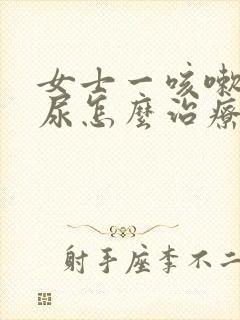 女士一咳嗽
尿怎麼治療
射手座李不二